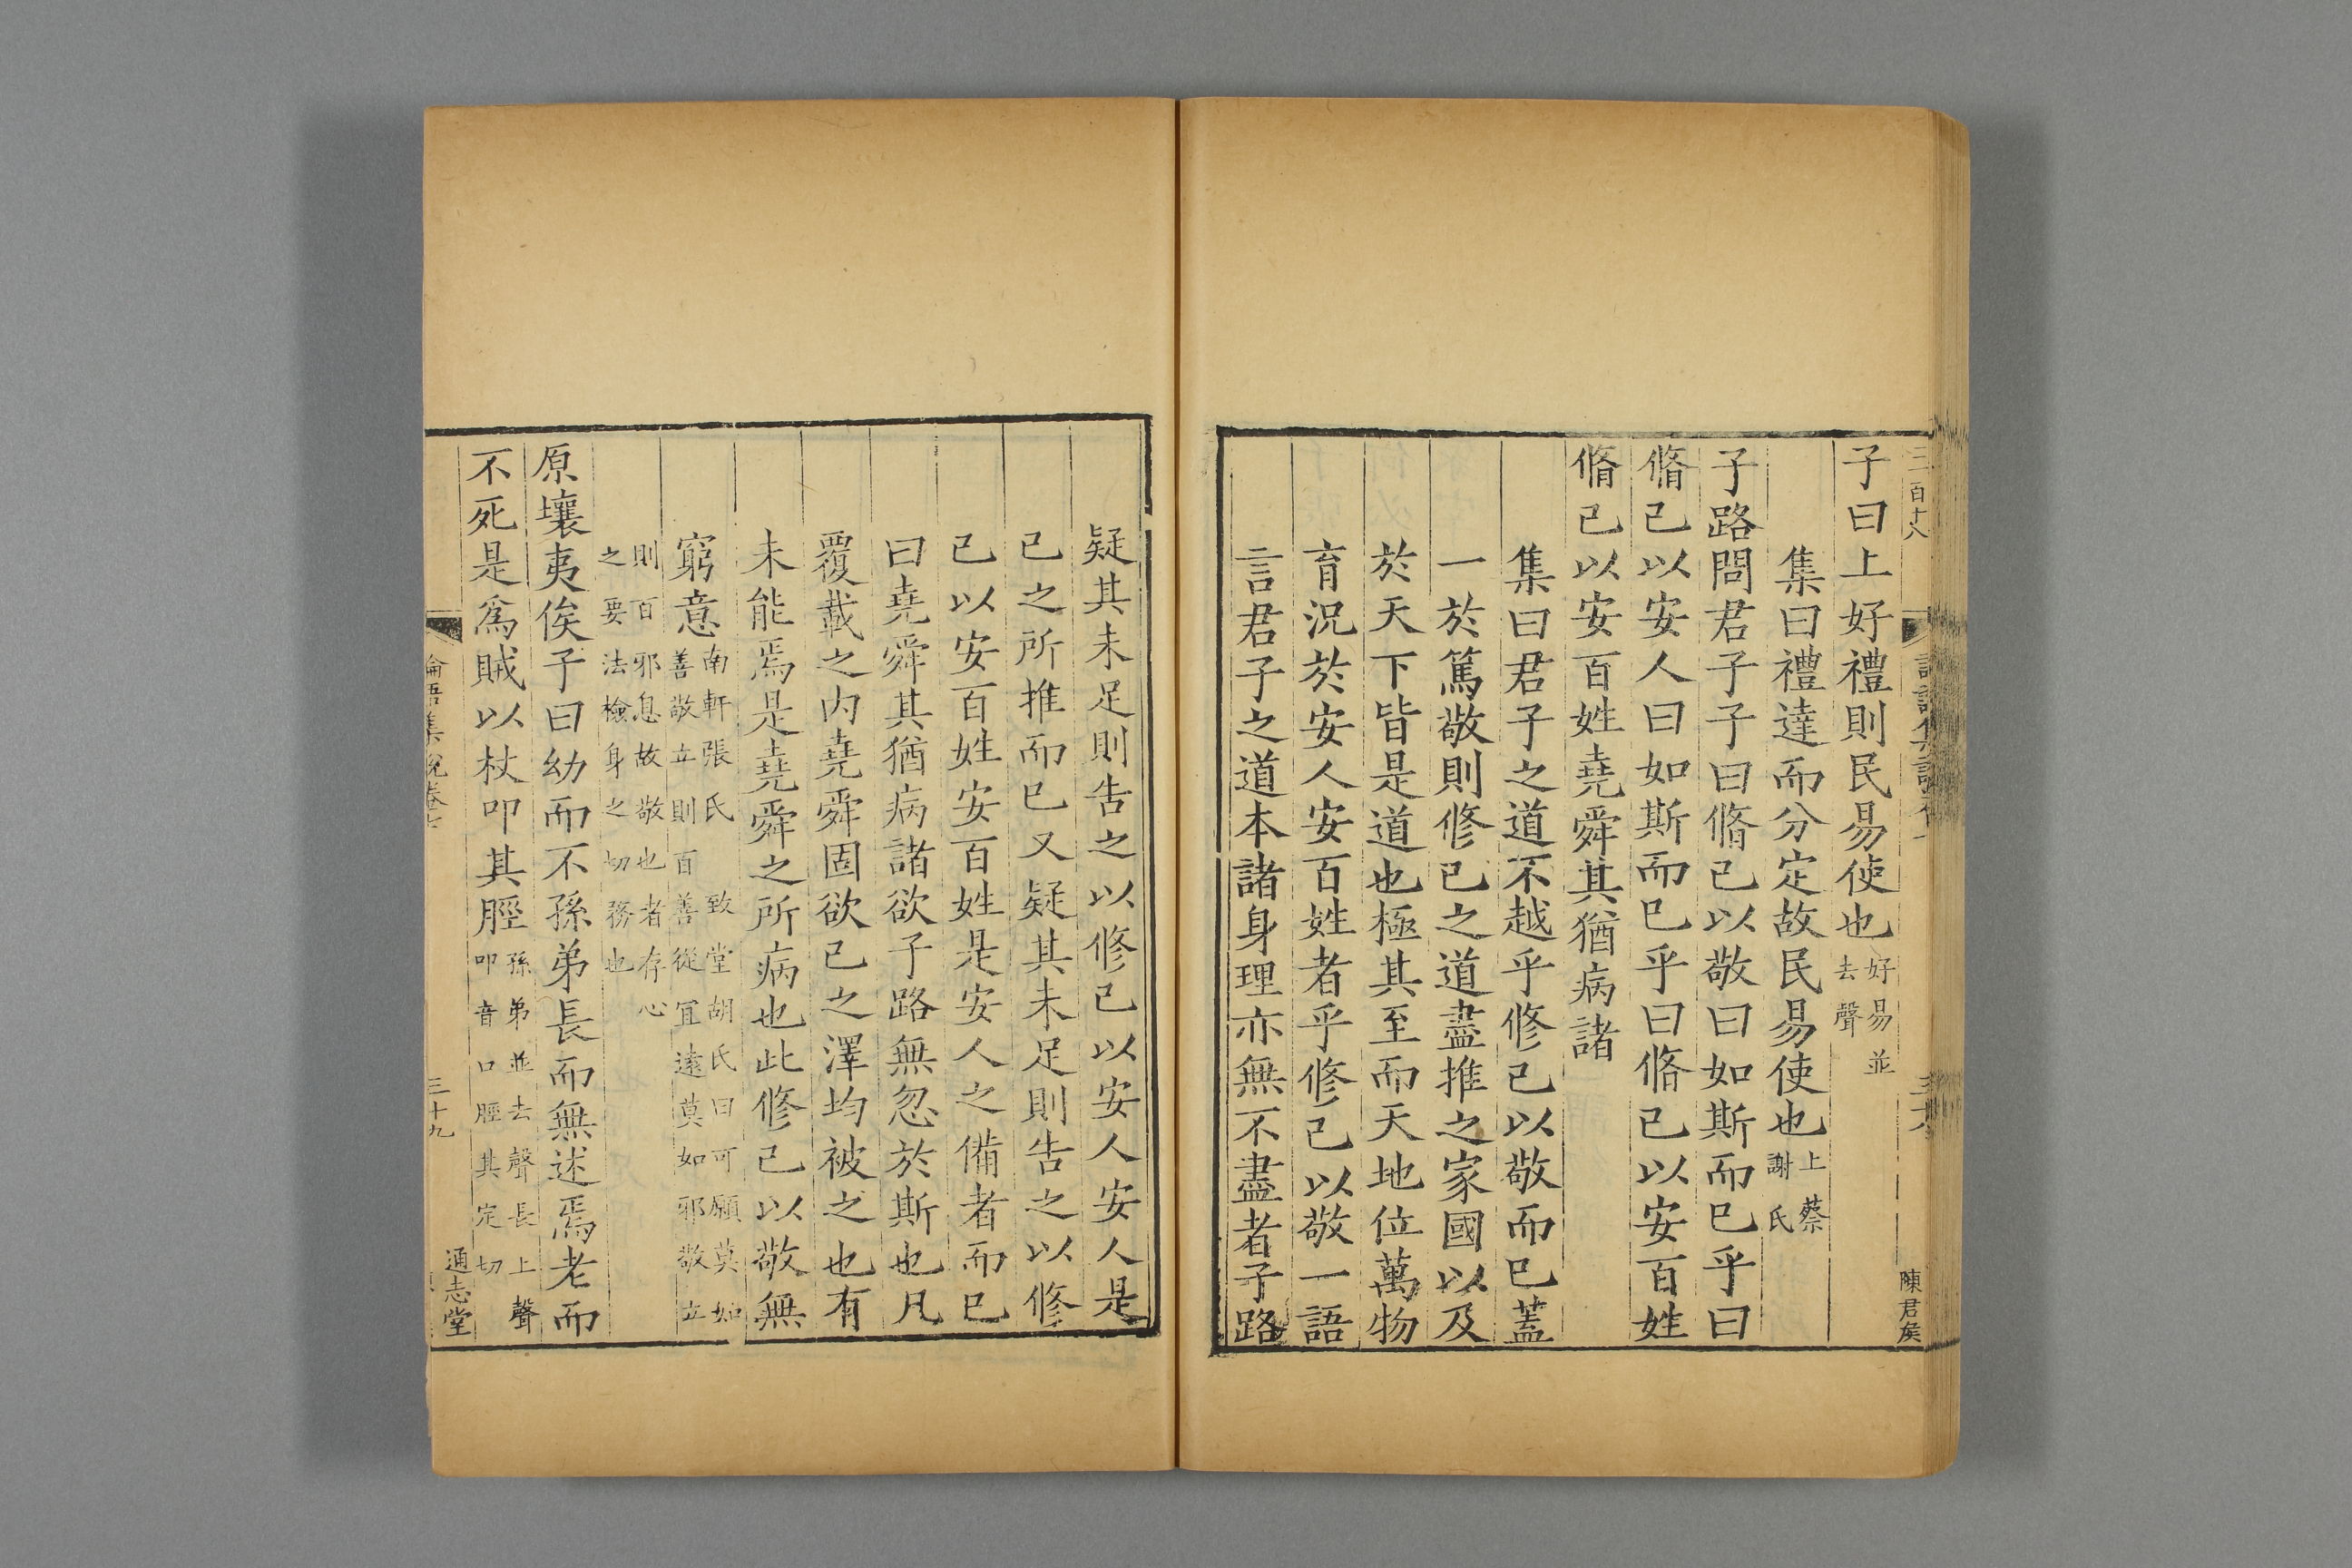 三百十八
陳君矦
子曰上好禮則民易使也好易並去聲
集曰禮達而分定故民易使也上蔡謝氏
子路問君子子曰脩己以敬曰如斯而已乎曰
脩己以安人曰如斯而已乎曰脩己以安百姓
脩己以安百姓堯舜其猶病諸
集曰君子之道不越乎修己以敬而已蓋
一於篤敬則修己之道盡推之家國以及
於天下皆是道也極其至而天地位萬物
育況於安人安百姓者乎修己以敬一語
言君子之道本諸身理亦無不盡者子路
疑其未足則告之以修己以安人安人是
己之所推而已又疑其未足則告之以修
己以安百姓安百姓是安人之備者而已
曰堯舜其猶病諸欲子路無忽於斯也凡
覆載之内堯舜固欲己之澤均被之也有
未能焉是堯舜之所病也此修己以敬無
窮意南軒張氏 致堂胡氏曰可願莫如善敬立則百善從宜遠莫如邪敬立
則百邪息故敬也者存心之要法檢身之切務也
原壤夷俟子曰幼而不孫弟長而無述焉老而
不死是爲賊以杖叩其脛孫弟並去聲長上聲叩音口脛其定切
論語集說卷七
三十九
通志堂